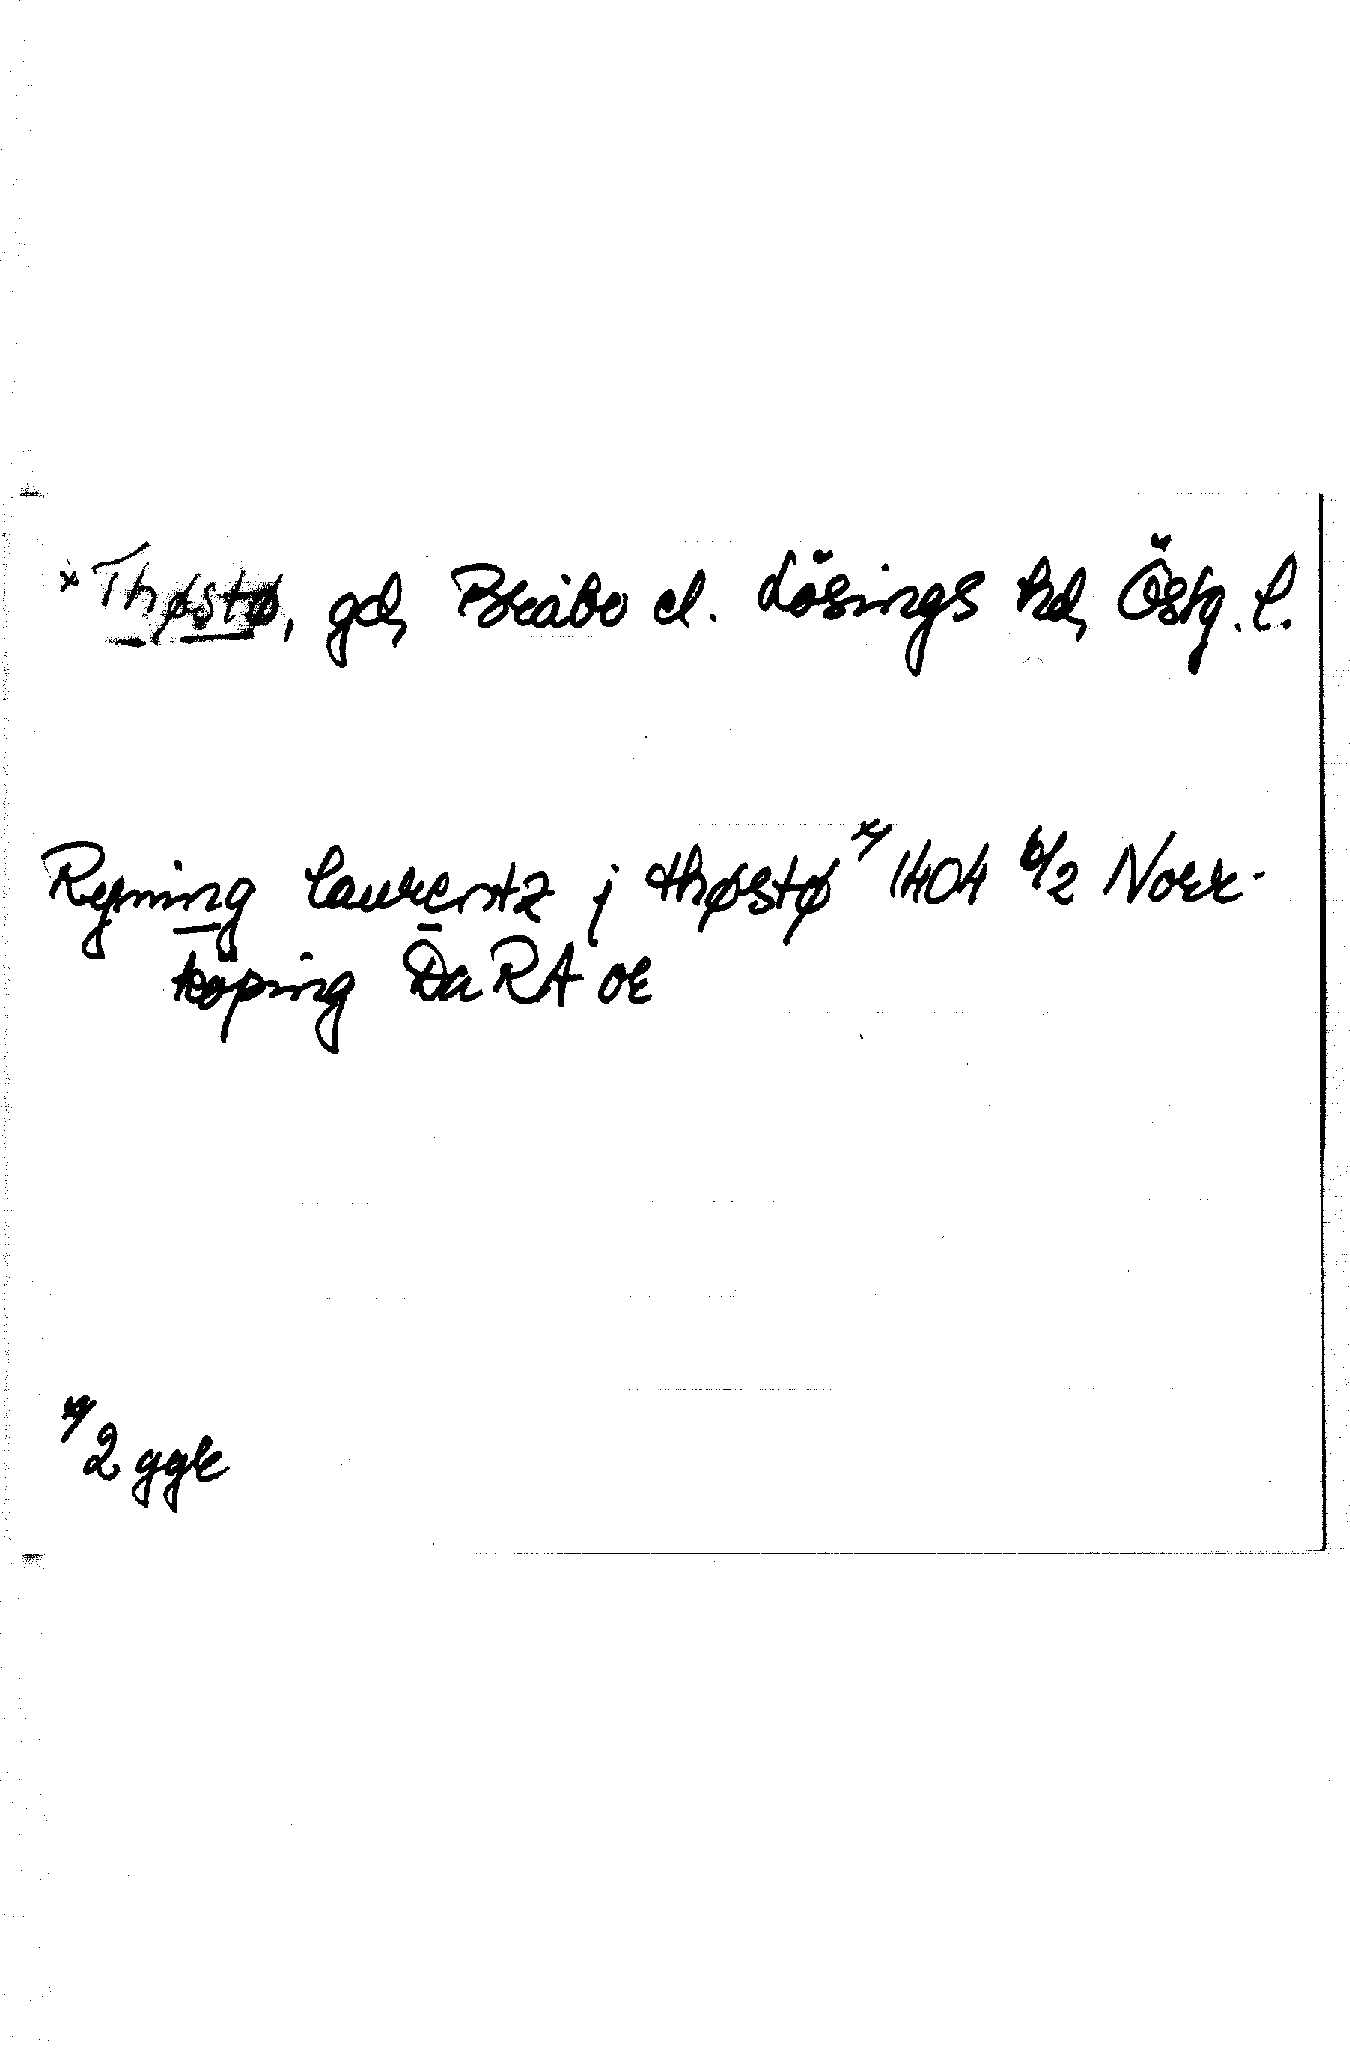 * Thøstø, gd, Bråbo el. Lösings hd, Östg. l.
Ryning laurentz j thøstø x/ 1404 6/2 Norr-
köping Da RA or
x/ 2 ggr